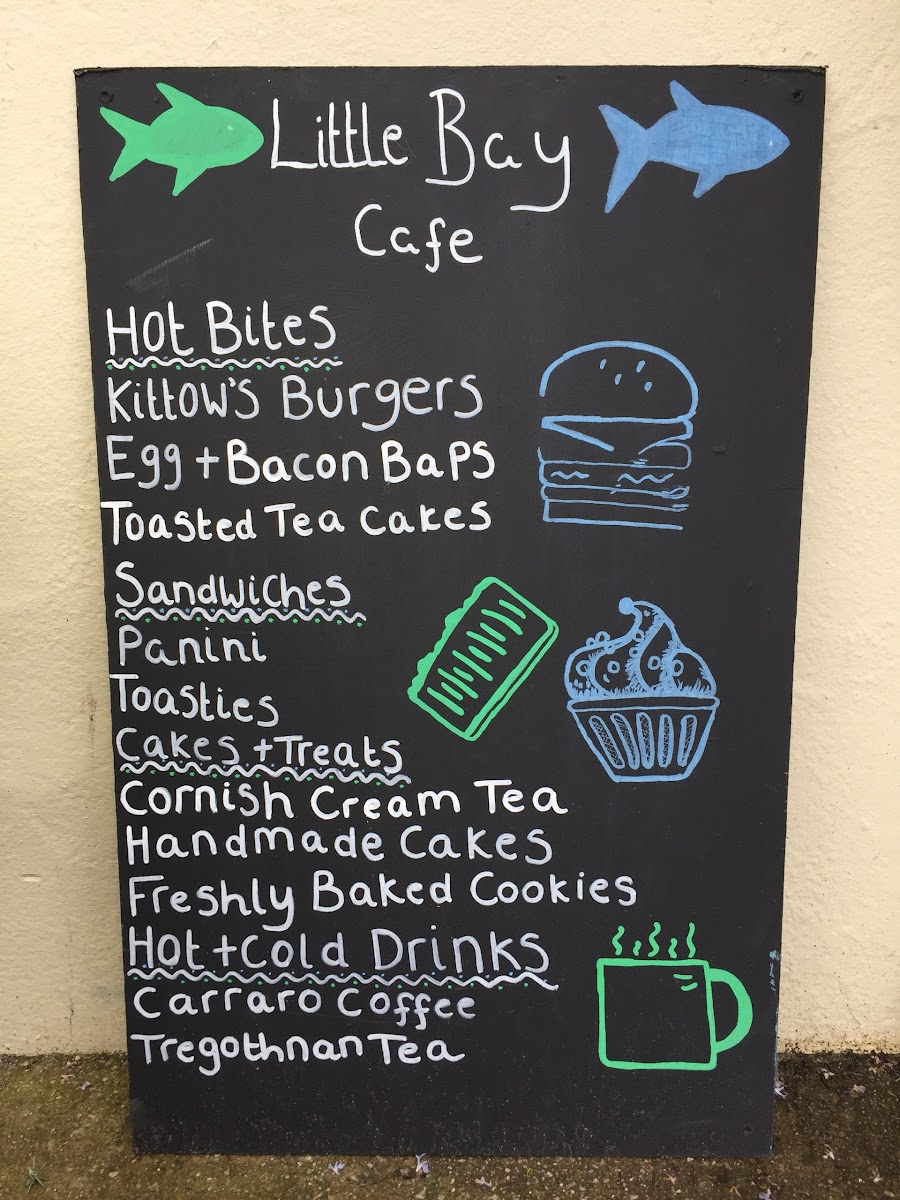 Little Bay
Cafe
Hot Bites
Kittow's Burgers
Egg + Bacon Baps
Toasted Tea Cakes
Sandwiches
Panini
Toasties
Cakes + Treats
Cornish Cream Tea
Handmade Cakes
Freshly Baked Cookies
Hot + Cold Drinks
Carraro Coffee
Tregothnan Tea